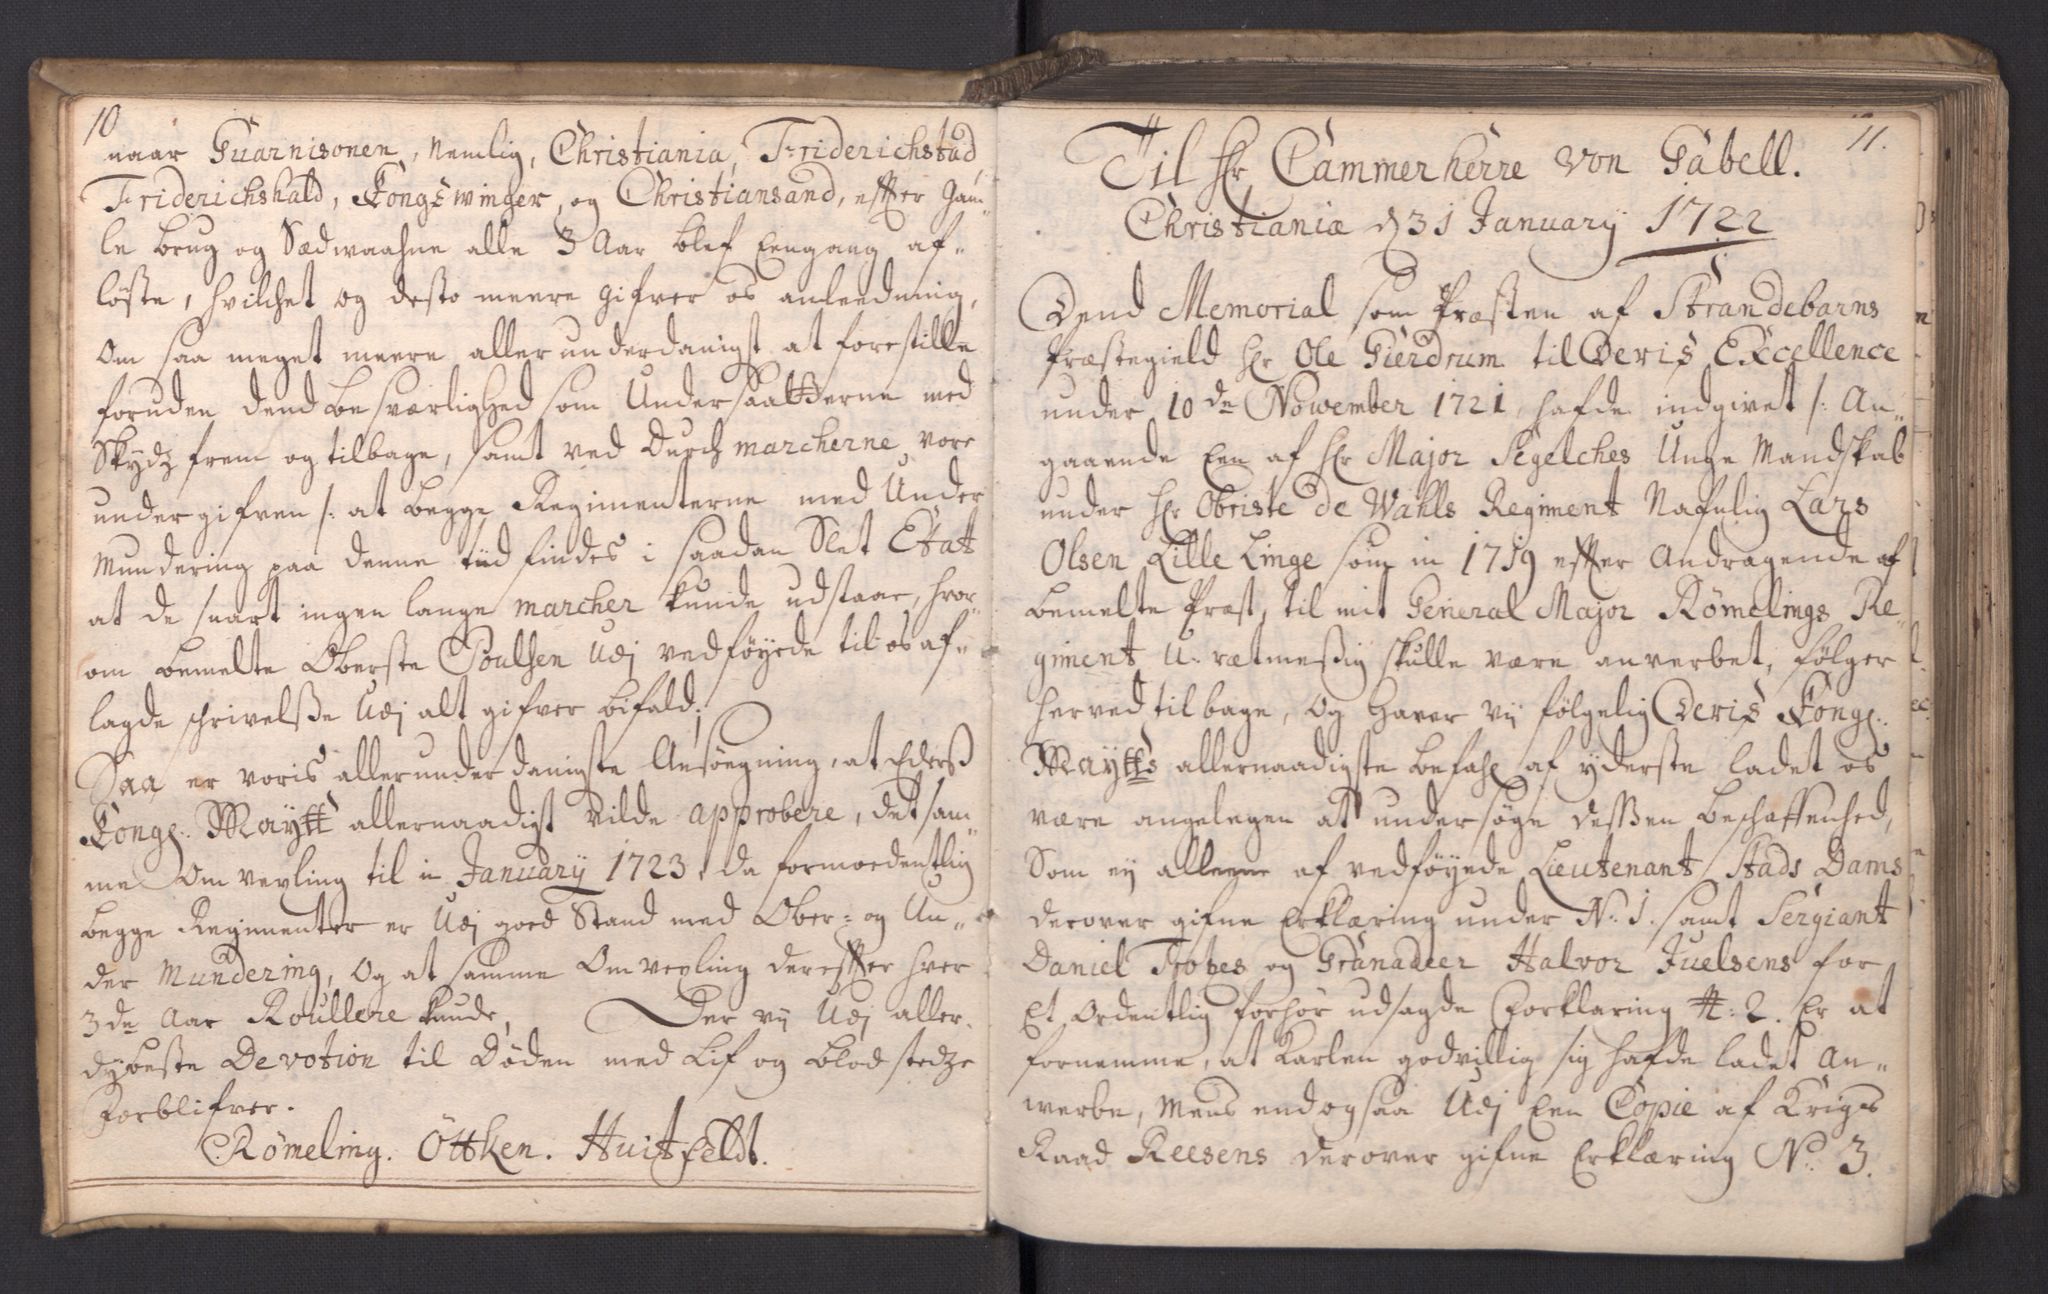 10
naar Guarnisonen, Nemlig, Christiania, Friderichstad
Friderichshald, Kongswinger, og Christiansand, effter gam-
le brug og Sædwaahne alle 3 Aar blef Eengang af-
löste, hvilchet og desto meere gifver os anleedning,
Om saa meget meere allerunderdanigst at forestille
foruden dend besværlighed som Undersaatterne med
Skydz frem og tilbage, samt ved Durch marcherne vore
undergifven /: at begge Regimenterne med Under
Mundering paa denne tiid findes i saadan Slet Etat
at de snart ingen lange marcher kunde udstaae, hvor-
om bemelte Oberste Poulsen Udj vedföyede til os af-
lagde schrivelße Udj alt gifver bifald;
Saa er voris allerunderdanigste Ansöegning, at Ederß
Kongl. Maytt allernaadigst vilde approbere, det sam-
me Omvexling til in Januarij 1723, da formoedentlig
begge Regimenter er Udj goed Stand med Ober- og Un-
der Mundering, Og at samme Omvexling dereffter hver
3de Aar Roullere kunde, Der vij Udj aller-
dybeste Devotion til Döden med Lif og blod stedze
Forblifver.
Römeling. Öttken. Huitfeldt.
11.
Til Hr Cammerherre von Gabell.
Christiania d 31 Januarij 1722
Dend Memorial som Præsten af Strandebarns
Præstegield Hr Ole Gierdrum til Deris Excellence
under 10de Nowember 1721 hafde indgivet /: An-
gaaende Een af Hr Major Segelches Unge Mandskab
under Hr Obriste de Wahls Regiment Nafnlig Lars
Olsen Lille Linge som in 1719 effter Andragende af
bemelte Præst, til mit General Major Römelings Re-
giment U-rætmeßig skulle være anverbet, fölger
herved tilbage, Og haver vij fölgelig Deris Kongl.
Maytts allernaadigste befahl af yderste ladet os
være angelegen at undersöge deßen beschaffenhed,
Som ej alleene af vedföyede Lieutenant Stads Dams
derover gifne Erklæring under No. 1. samt Sergiant
Daniel Tropes og Granadeer Halvor Juelsens for
Et Ordentlig forhör udsagde Forklaring N: 2. Er at
fornemme, at Karlen godvillig sig hafde ladet An-
werbe, Mens endogsaa Udj Een Copie af Kriges
Raad Reesens derover gifne Erklæring No. 3.